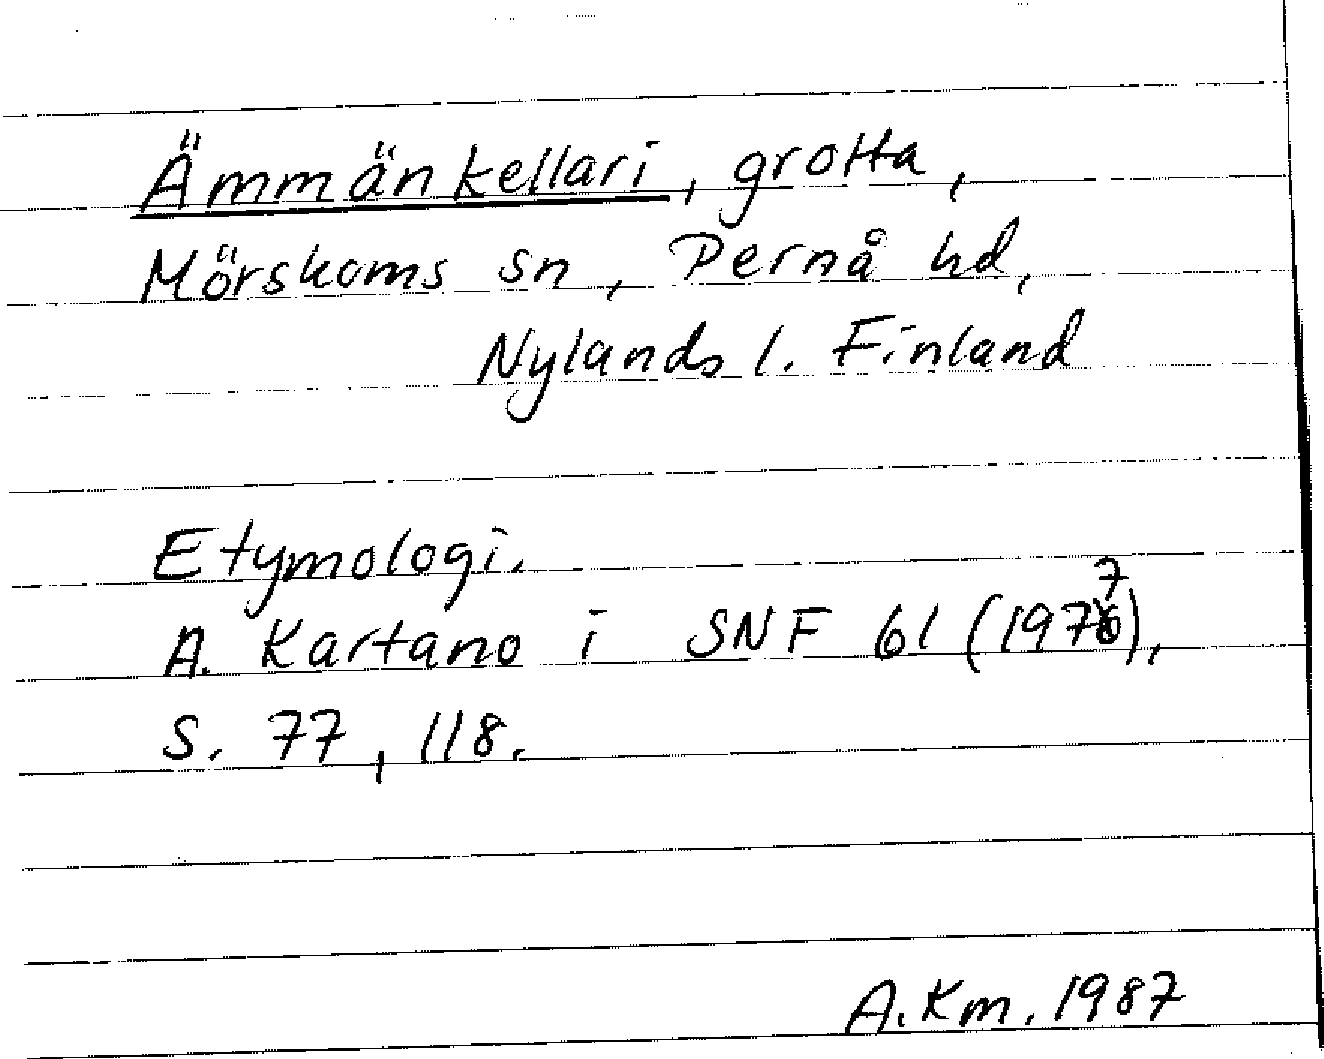 Ämmänkellari, grotta,
Mörskoms sn, Pernå hd,
Nylands l. Finland
Etymologi.
A. Kartano i SNF 61 (1977),
S. 77, 118.
A.Km. 1987